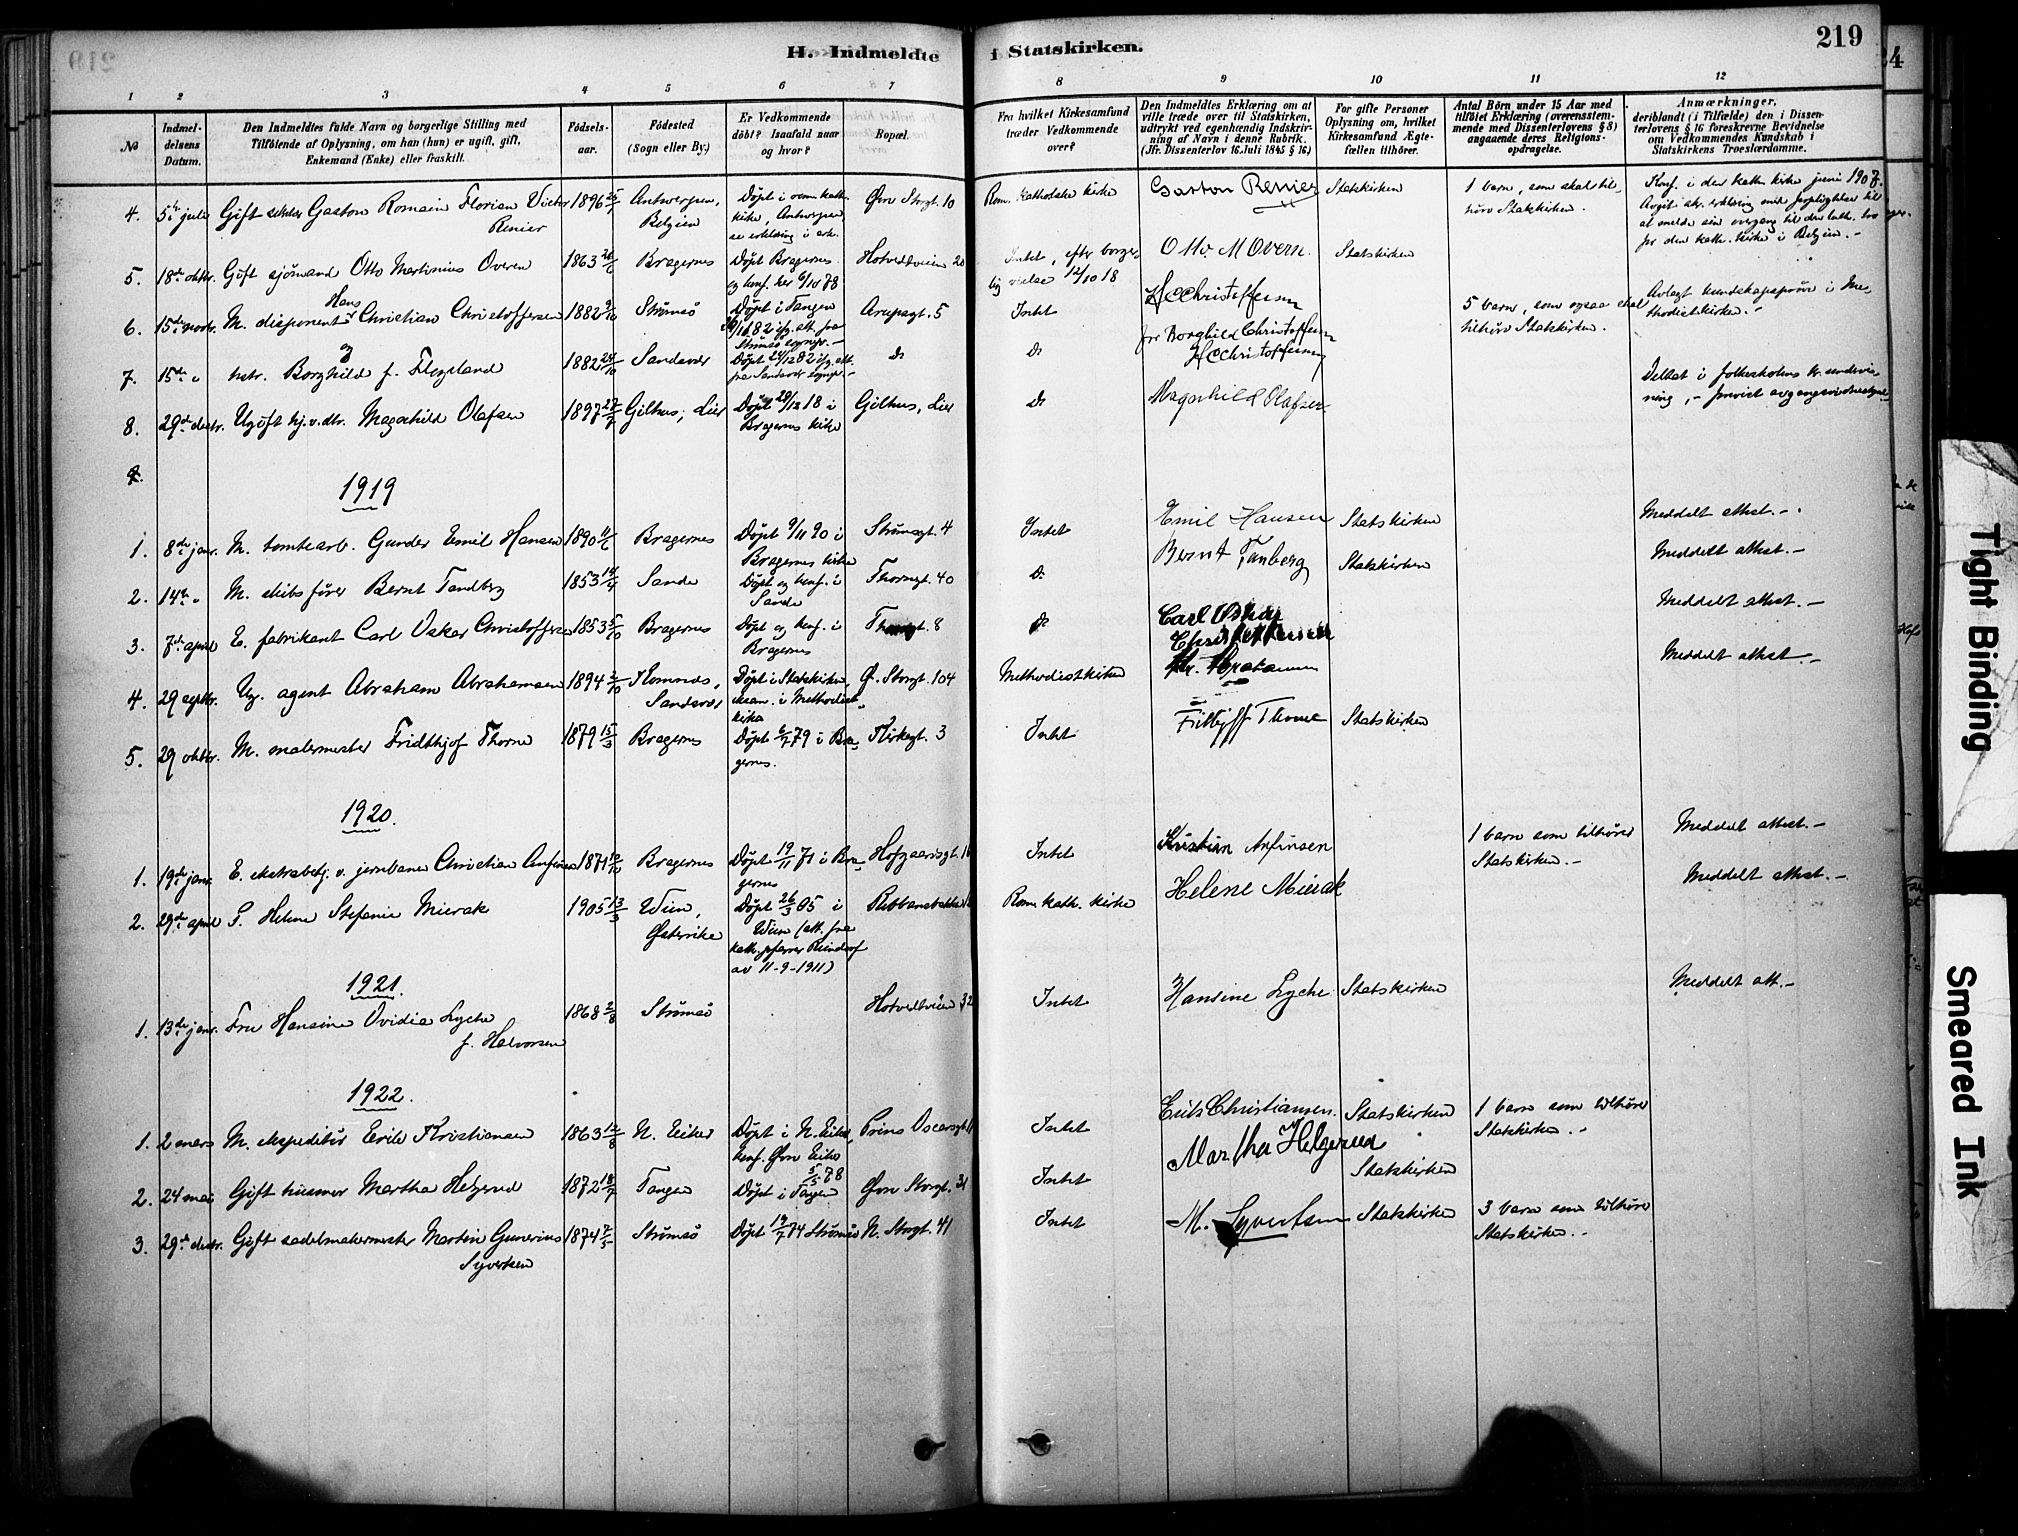 219
H. Indmeldte i Statskirken.
1 2 3 4 5 6 7 8 9 10 11 12
No
Indmel-
delsens
Datum.
Den Indmeldtes fulde Navn og borgerlige Stilling med
Tilföiende af Oplysning, om han (hun) er ugift, gift,
Enkemand (Enke) eller fraskilt.
Födsels-
aar.
Födested
(Sogn eller By.)
Er Vedkommende
döbt? Isaafald naar
og hvor?
Bopæl.
Fra hvilket Kirkesamfund
træder Vedkommende
over?
Den Indmeldtes Erklæring om at
ville træde over til Statskirken,
udtrykt ved egenhændig Indskriv-
ning af Navn i denne Rubrik.
(Jfr. Dissenterlov 16. Juli 1845 § 16.)
For gifte Personer
Oplysning om, hvilket
Kirkesamfund Ægte-
fællen tilhörer.
Antal Börn under 15 Aar med
tilföiet Erklæring (overensstem-
mende med Dissenterlovens § 8)
angaaende deres Religions-
opdragelse.
Anmærkninger,
deriblandt (i Tilfælde) den i Dissen-
terlovens § 16 foreskrevne Bevidnelse
om Vedkommendes Kundskab i
Statskirkens Troeslærdomme.
4. 5te juli Gift Gaston Romain Florian Victor Renier 1896 25/7 Antwerpen, Belgien Døpt i rom. kath. kirke, Antwerpen Øvre Storgt. 10 Rom. Katholske kirke Gaston Renier Statskirken 1 barn, som skal tilhøre Statskirken. Konf. i den kath. kirke juni 1907.
5. 18de oktbr. Gift sjömand Otto Martinius Overn 1863 Bragernes Døpt Bragernes og konf. her 6/10 78 Hotvedtveien 20 Intet, efter borgerlig vielse 12/10 18 Otto M Overn. Statskirken
6. 15de novbr. M. disponent Hans Christian Christoffersen 1882 9/10 Strømsö Døpt i Tangen Arupsgt. 5 Intet H C Christoffersen 5 barn, som ogsaa skal tilhöre Statskirken. Avlagt kundskapsprøve i Methodistkirken.-
7. 15de " og hstr. Borghild f. Flogeland 1882 Sandevær Døpt 24/12 82 Do Do fru Borghild Christoffersen H C Christoffersen
8. 29de desbr. Ugift hj.v.dtr. Magnhild Olafsen 1897 27/7 Gilhus, Lier Døpt 29/12 18 i Bragernes kirke Gilhus, Lier Do Magnhild Olafsen Deltat i folkeskolens kr. undervisning,
1919
1. 8de janr. M. tomtearb. Gunder Emil Hansen 1890 11/6 Bragernes Døpt 9/11 90 i Bragernes kirke Strømsgt. 4 Intet Emil Hansen Statskirken Meddelt attest.-
2. 14de " M. skibsfører Bernt Tandberg 1853 Sande Døpt og konf. i Sande Thornegt. 40 Do Bernt Tanberg Statskirken Meddelt attest.-
3. 7de april E. fabrikant Carl Oskar Christoffersen 1853 5/10 Bragernes Døpt og konf. i Bragernes 8 Do Carl Oskar Christoffersen Meddelt attest.-
4. 29 septbr. Ug. agent Abraham Abrahamsen 1894 2/10 Komnes, Sandsvær Døpt i Statskirken, eksam. i Methodistkirken Ø. Storgt. 104 Methodistkirken Meddelt attest.-
5. 29 oktbr. M. malermester Fridthjof Thorne 1879 15/3 Bragernes Døpt 6/7 79 i Bragernes. Kirkegt. 3 Intet Fridtjoff Thorne Statskirken
1920.
1. 19de janr. E. ekstrabetj. v. jernbanen Christian Anfinsen 1871 Bragernes Døpt 19/11 71 i Bragernes Hofgaardsgt. Intet Kristian Anfinsen 1 barn som tilhører Statskirken.- Meddelt attest.-
2. 29de april P. Helene Stefanie Mierak 1905 13/3 Wien, Østerrike Døpt 26/3 05 i Wien (att. fra kath. pfarrer Rindorf av 11-9-1911) Rom. kath. kirke Helene Mierak Meddelt attest.-
1921.
1. 13de janr. Fru Hansine Ovidia Lyche f. Halvorsen 1868 2/8 Strømsö Hotvedtveien 32 Intet Hansine Lyche Statskirken Meddelt att.-
1922.
1. 2 mars M. ekspeditør Erik Kristiansen 1863 12/8 N. Eiker Døpt i N. Eiker, konf. Øvre Eiker 5/5 78 Prins Oscarsgt. Intet Erik Christiansen. Statskirken 1 barn som tilhører Statskirken.-
2. 24 mai Gift husmor Martha Helgerud 1872 18/7 Tangen Døpt i Tangen Øvre Storgt. 31 Intet Martha Helgerud Statskirken
3. 29de desbr. Gift sadelmakermester Martin Gunerius Syvertsen 1874 2/5 Strømsö Døpt 19/7 74 Strømsö N. Storgt. 41 Intet M. Syvertsen Statskirken 3 barn som tilhører Statskirken.-
Tight Binding
Smeared Ink